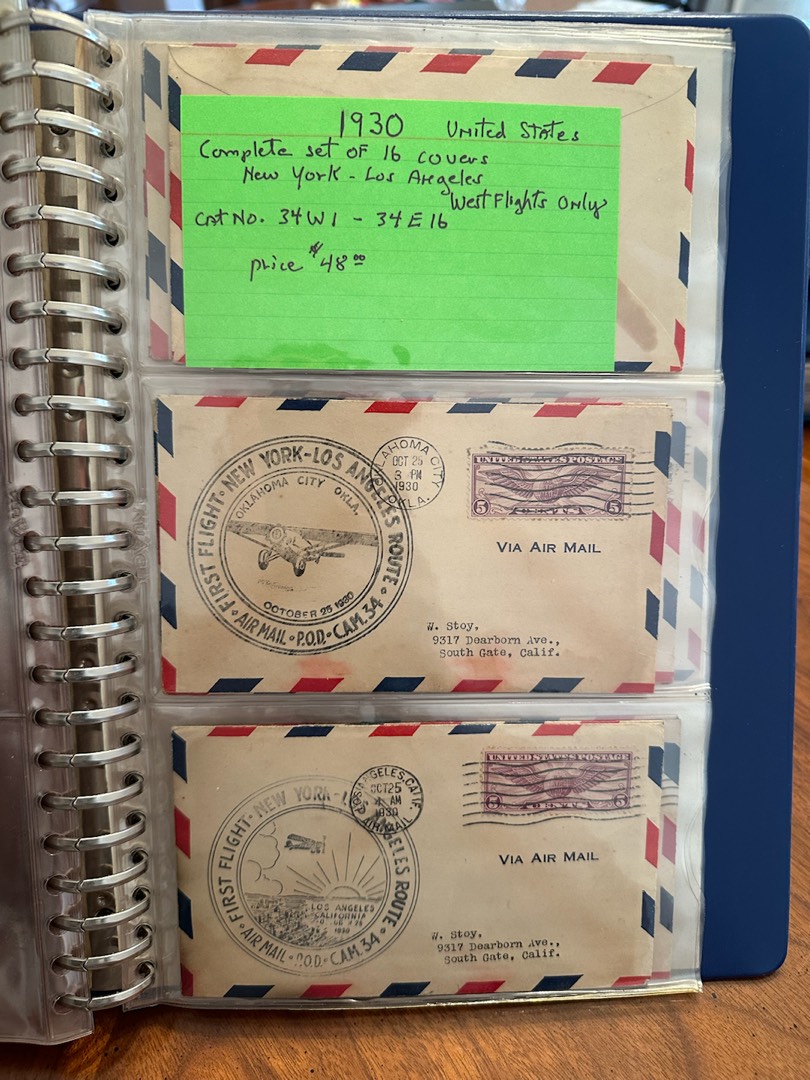 1930 United States
Complete set of 16 covers
New York - Los Angeles
West Flights Only
Cat No. 34W1 - 34E16
price $48.00
FIRST FLIGHT • NEW YORK-LOS ANGELES ROUTE •
OKLAHOMA CITY OKLA.
OCTOBER 25 1930
• AIR MAIL • P.O.D. • C.A.M. 34 •
OKLAHOMA CITY
OCT 25
3 PM
1930
OKLA.
UNITED STATES POSTAGE
5 5
VIA AIR MAIL
W. Stoy,
9317 Dearborn Ave.,
South Gate, Calif.
FIRST FLIGHT • NEW YORK - ANGELES ROUTE •
LOS ANGELES
CALIFORNIA
1930
• AIR MAIL • P.O.D. • C.A.M. 34 •
LOS ANGELES, CALIF.
OCT 25
AM
1930
AIR MAIL
UNITED STATES POSTAGE
5 CENTS 5
VIA AIR MAIL
W. Stoy,
9317 Dearborn Ave.,
South Gate, Calif.